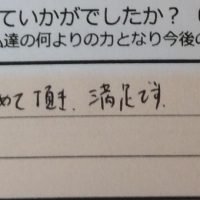 ていかがでしたか？（
達の何よりの力となり今後の
めて頂き、満足です。